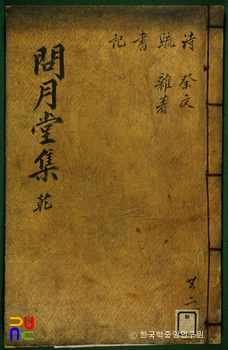 詩 祭文
疏 雜著
書
記
問月堂集 乾
共二
© 한국학중앙연구원